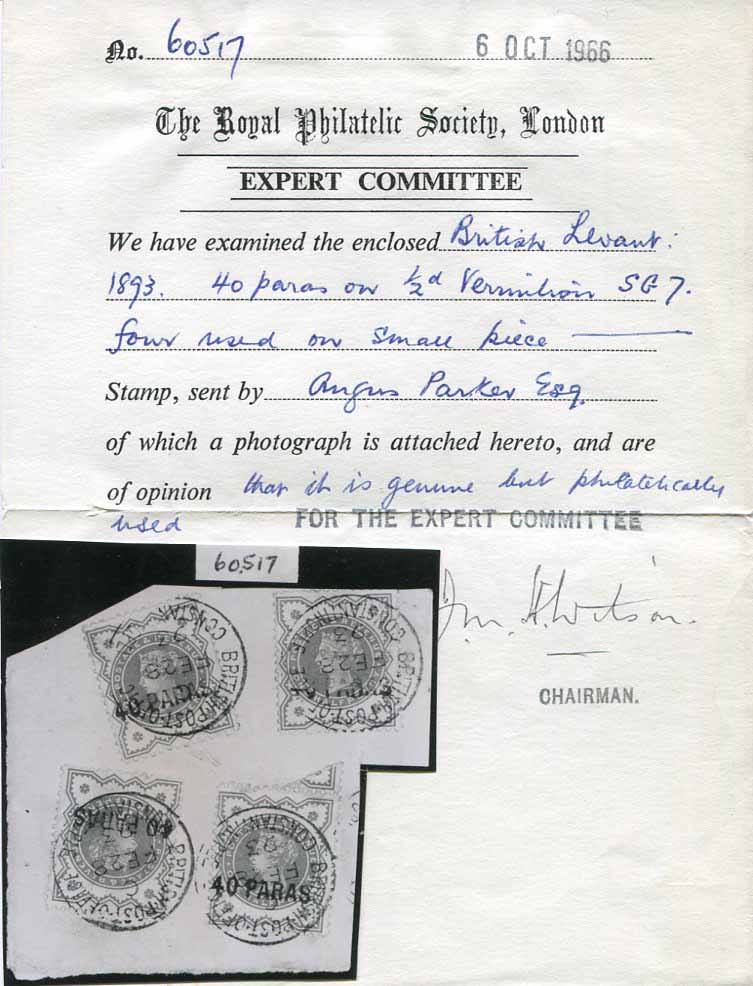 No. 60517 6 OCT 1966
The Royal Philatelic Society, London
EXPERT COMMITTEE
We have examined the enclosed British Levant:
1893. 40 paras on ½d Vermilion SG 7.
four used on small piece
Stamp, sent by Angus Parker Esq.
of which a photograph is attached hereto, and are
of opinion that it is genuine but philatelically
used FOR THE EXPERT COMMITTEE
60,517
CHAIRMAN.
BRITISH POST OFFICE
CONSTAN
FE 28
93
40 PARAS
BRITISH POST OFFICE
CONSTAN
FE 28
93
BRITISH POST OFFICE
CONSTANTINOPLE
FE 28
40 PARAS
BRITISH POST OFFICE
CONSTANTINOPLE
93
40 PARAS